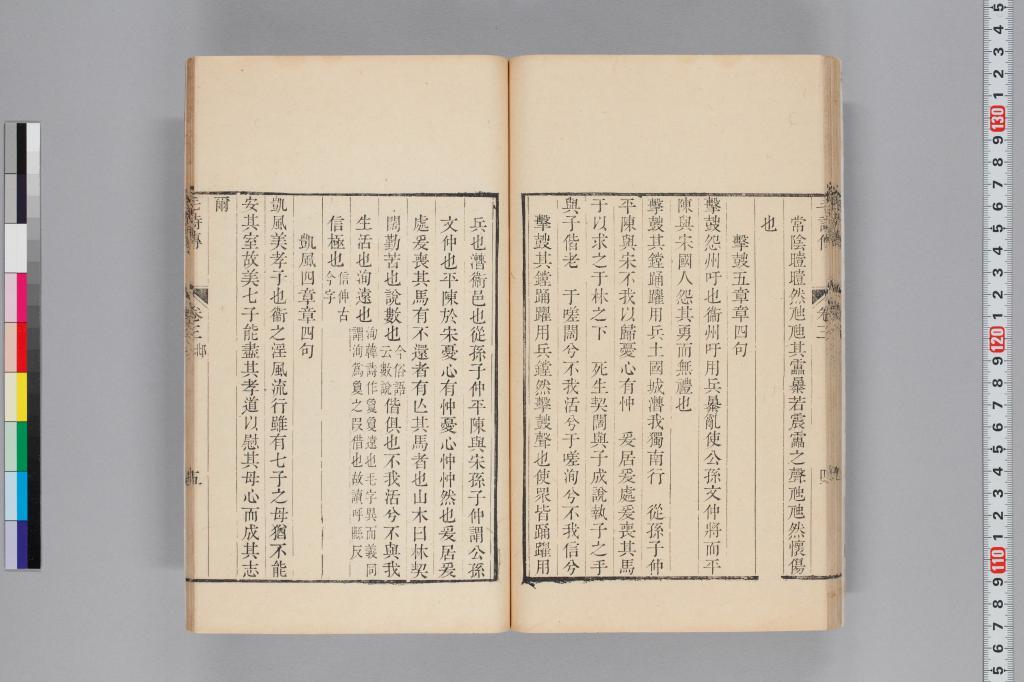 常陰曀曀然虺虺其靁暴若震靁之聲虺虺然懷傷
也
擊鼓五章章四句
擊鼓怨州吁也衞州吁用兵暴亂使公孫文仲將而平
陳與宋國人怨其勇而無禮也
擊鼓其鏜踊躍用兵土國城漕我獨南行　從孫子仲
平陳與宋不我以歸憂心有忡　爰居爰處爰喪其馬
于以求之于林之下　死生契闊與子成說執子之手
與子偕老　于嗟闊兮不我活兮于嗟洵兮不我信兮
擊鼓其鏜踊躍用兵鏜然擊鼓聲也使衆皆踊躍用
毛詩傳　卷三邶　五
兵也漕衞邑也從孫子仲平陳與宋孫子仲謂公孫
文仲也平陳於宋憂心有忡憂心忡忡然也爰居爰
處爰喪其馬有不還者有亾其馬者也山木曰林契
闊勤苦也說數也今俗語云數說偕俱也不我活兮不與我
生活也洵遠也洵韓詩作夐夐遠也毛字異而義同謂洵爲夐之叚借也故讀呼縣反
信極也信伸古今字
凱風四章章四句
凱風美孝子也衞之淫風流行雖有七子之母猶不能
安其室故美七子能盡其孝道以慰其母心而成其志
爾